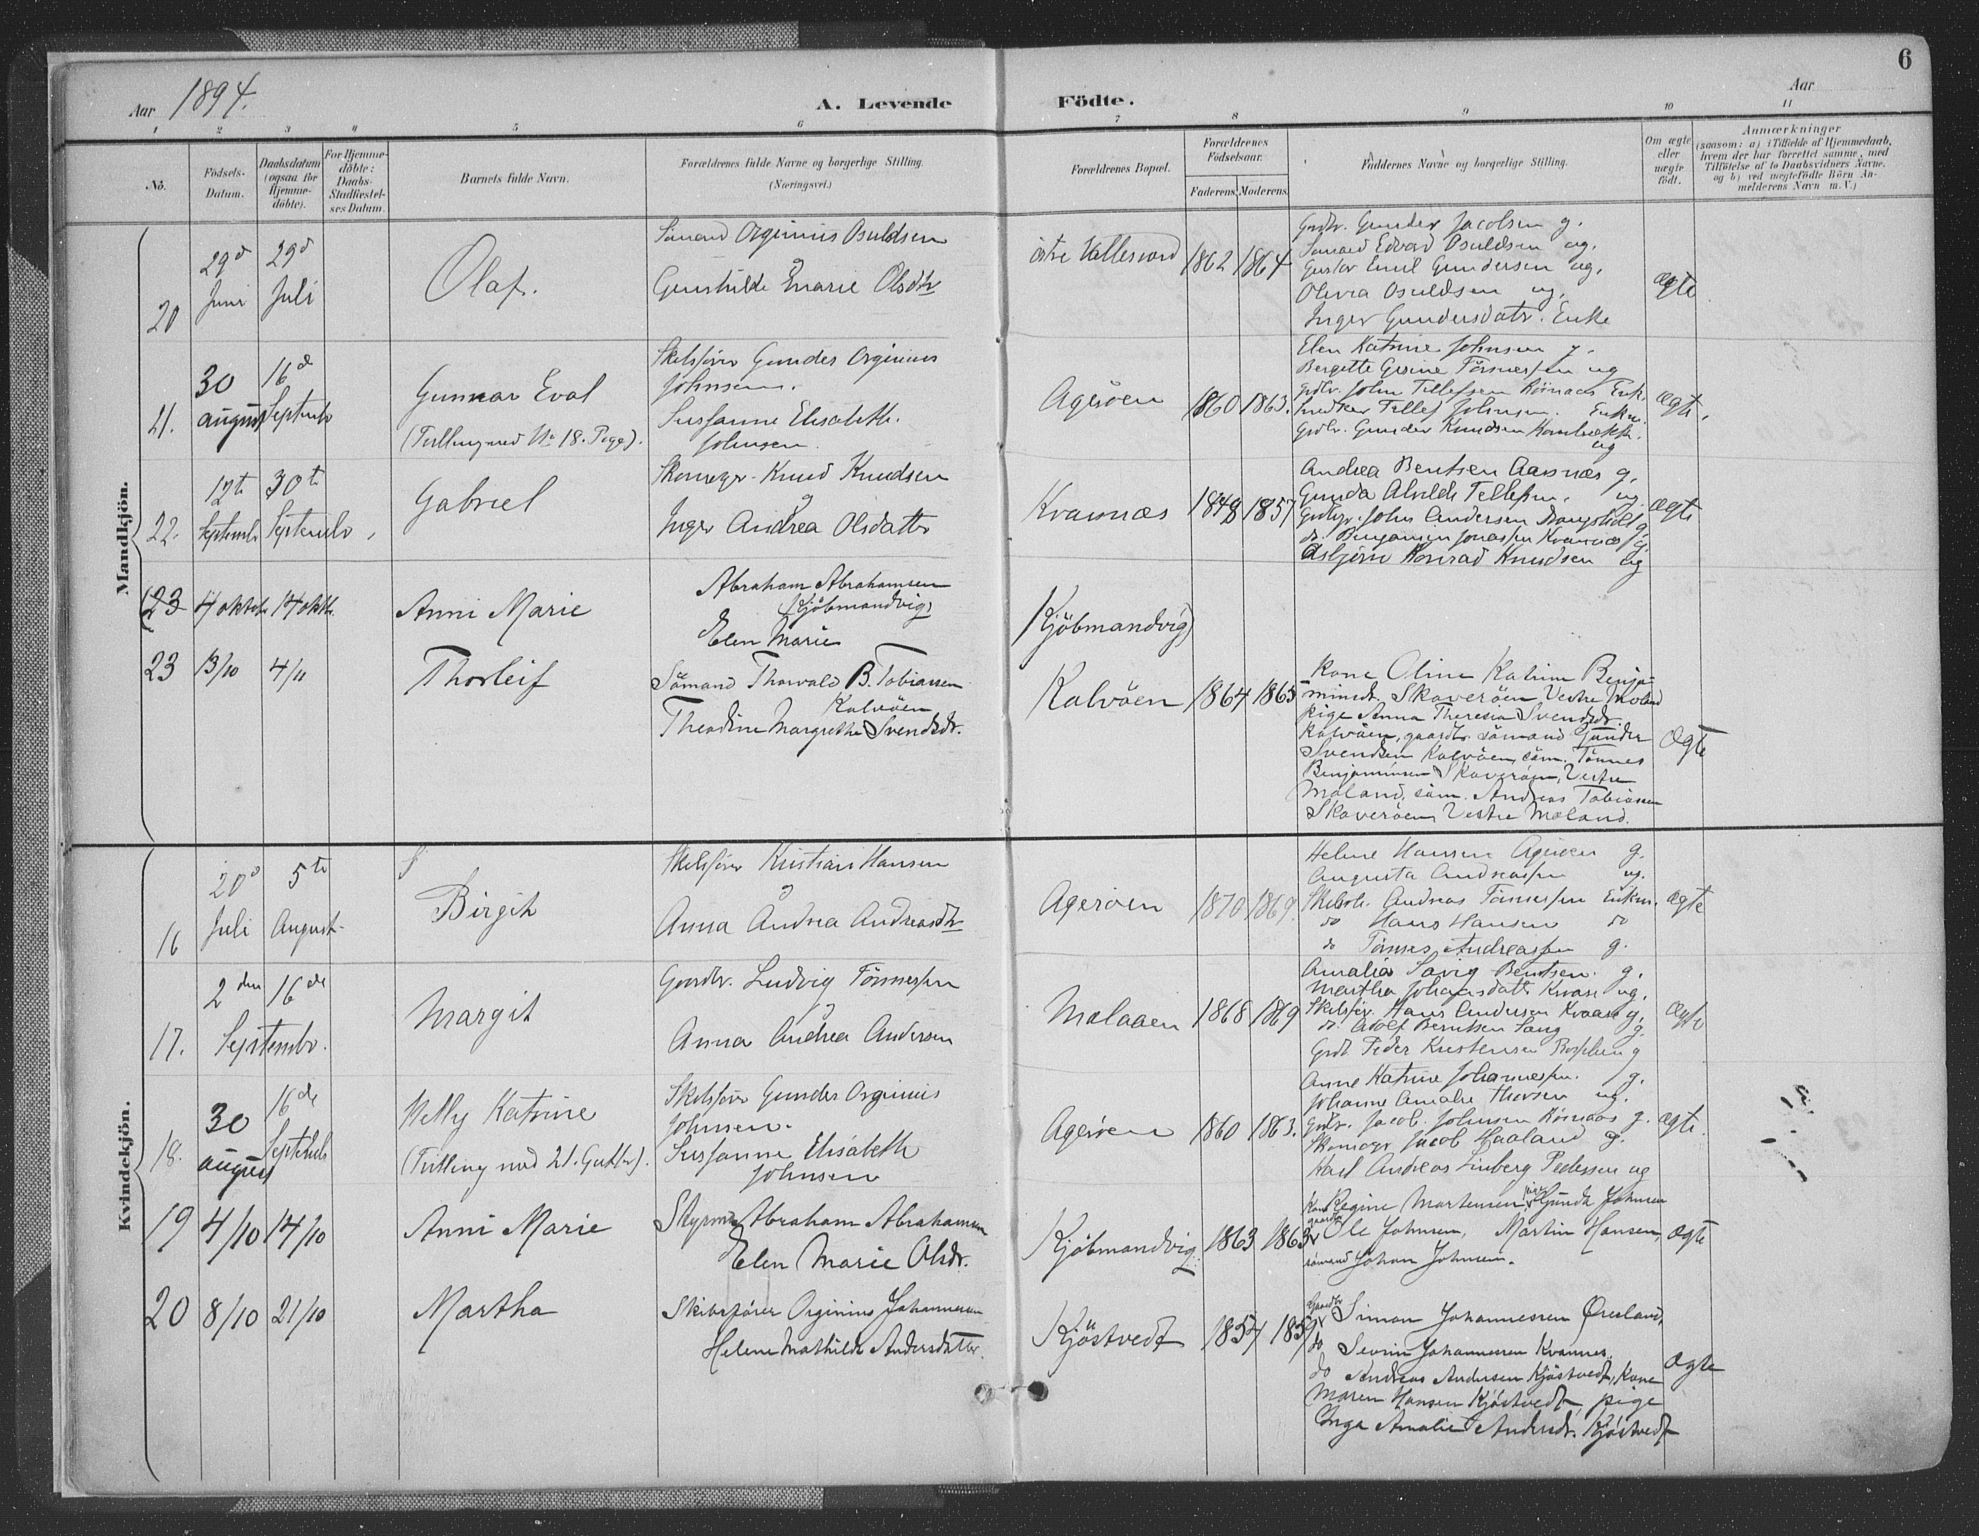 6
Aar 1894.
A. Levende Födte.
Aar
1 2 3 4 5 6 7 8 9 10 11
No.
Födsels-Datum.
Daabsdatum (ogsaa for Hjemme-döbte).
For Hjemme-döbte: Daabs-Stadfæstel-ses Datum.
Barnets fulde Navn.
Forældrenes fulde Navne og borgerlige Stilling. (Næringsvei.)
Forældrenes Bopæl.
Forældrenes Födselsaar.
Faderens. Moderens.
Faddernes Navne og borgerlige Stilling.
Om ægte eller uægte födt.
Anmærkninger
(saasom: a) i Tilfælde af Hjemmedaab, hvem der har forrettet samme, med Tilföielse af to Daabsvidners Navne. og b) ved uægtefödte Börn An-melderens Navn m. V.)
Mandkjön.
20
29d Juni
29d Juli
Olaf.
Sömand Orginius Osuldsen
Gunhilde Marie Olsdtr
östre Vallesverd
1862 1864
Grdbr. Gunder Jacobsen g.
Sømand Edvard Osuldsen ug.
Gustav Emil Gundersen ug.
Olivia Osuldsen ug.
Inger Gundersdatr. Enke
ægte
21.
30 august
16de Septembr
Gunnar Eval
(Tvilling med No 18. Pige).
Skibsförer Gunder Orginius
Johnsen.
Susanne Elisabeth
Johnsen
Agerøen
1860 1863.
Elen Katrine Johnsen g.
Bergitte Gurine Tönnessen ug
Grdbr. John Tellefsen Enkm.
Tellef Johnsen. Enkm.
Grdbr. Gunder Knudsen
ug
Ægte.
22.
12te Septembr
30te Septembr.
Gabriel
Skomagr. Knud Knudsen
Inger Andrea Olsdatter
Kvannæs
1848 1857
Andrea Bentsen Aasnæs g.
Gunda Alvilde Tellefsen. ug.
John Andersen
do. Benjamin Jonassen Kvannæs g.
Asbjörn Konrad Knudsen ug
Ægte
(23 4 oktobr 14 oktbr.
Anni Marie
Abraham Abrahamsen
(Kjöbmandvig)
Elen Marie
(Kjöbmandvig)
23 13/10 4/11
Thorleif
Sömand Thorvald B. Tobiassen
Kalvöen
Theodine Margrethe Svendsdr.
Kalvöen
1864 1865
Kone Oline Katrine Benja-
minsdr. Skaverøen Vestre Moland
pige Anna Theresia Svendsdr.
Kalvöen, gaardbr. sömand Gunder
Svendsen Kalvöen, söm. Tönnes
Benjaminsen Skaveröen, Vestre
Moland, söm. Andreas Tobiassen
Skaveröen, Vestre Moland.
Ægte
Kvindekjön.
16
20d Juli
5te August
Birgit
Skibsförer Kristian Hansen
Anna Andrea Andreasdtr
Agerøen
1870 1869.
Helene Hansen Agerøen g.
Augusta Andreassen ug.
Skibsf. Andreas Tönnessen Enkm.
do Hans Hansen do
do Tönnes Andreassen g.
Ægte
17.
2den 16de
Septembr.
Margit
Gaardbr. Ludvig Tönnessen
Anna Andrea Andersen
Molaaen
1868 1869
Amalia Bentsen g.
Martha Johansdatr Kvase ug.
Skibsför. Hans Andersen Kvaase g.
do. Adolf Berntsen g.
Grdbr Peder Kristensen g
Ægte
18.
30 august
16de Septembr
Nelly Katrine
(Tvilling med 21. Guttbr).
Skibsförer Gunder Orginius
Johnsen.
Susanne Elisabeth
Johnsen
Agerøen
1860 1863.
Anne Katrine Johannessen. g.
Johanne Amalie Thorsen ug.
Grdbr. Jacob Johnsen g.
Skomagr. Jacob Haaland g.
Karl Andreas Linberg Pedersen ug
Ægte.
19 4/10 14/10
Anni Marie
Styrm. Abraham Abrahamsen
Elen Marie Olsdr.
Kjöbmandvig.
1863 1863
Kone Regine Martensen, pige Gunda Johnsen
gaardbr Ole Johnsen, Martin Hansen,
sömand Johan Johnsen.
Ægte
20 8/10 21/10
Martha
Skibsförer Orginius Johannesen
Helene Mathilde Andersdatter.
Kjöstvedt
1854 1859
Gaardbr Simon Johannessen Øresland,
do Severin Johannessen Kvannes,
do Andreas Andersen Kjöstvedt, Kone
Maren Hansen Kjöstvedt, pige
Inga Amalie Andersdr. Kjöstvedt
Ægte